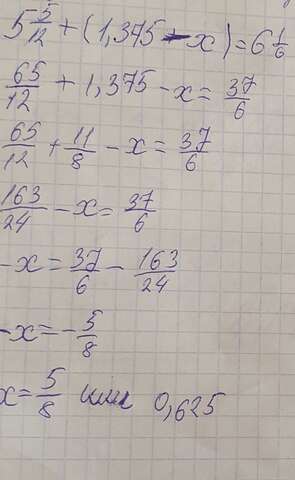 5 5/12 + (1,375 - x) = 6 1/6
65/12 + 1,375 - x = 37/6
65/12 + 11/8 - x = 37/6
163/24 - x = 37/6
-x = 37/6 - 163/24
-x = -5/8
x = 5/8 или 0,625